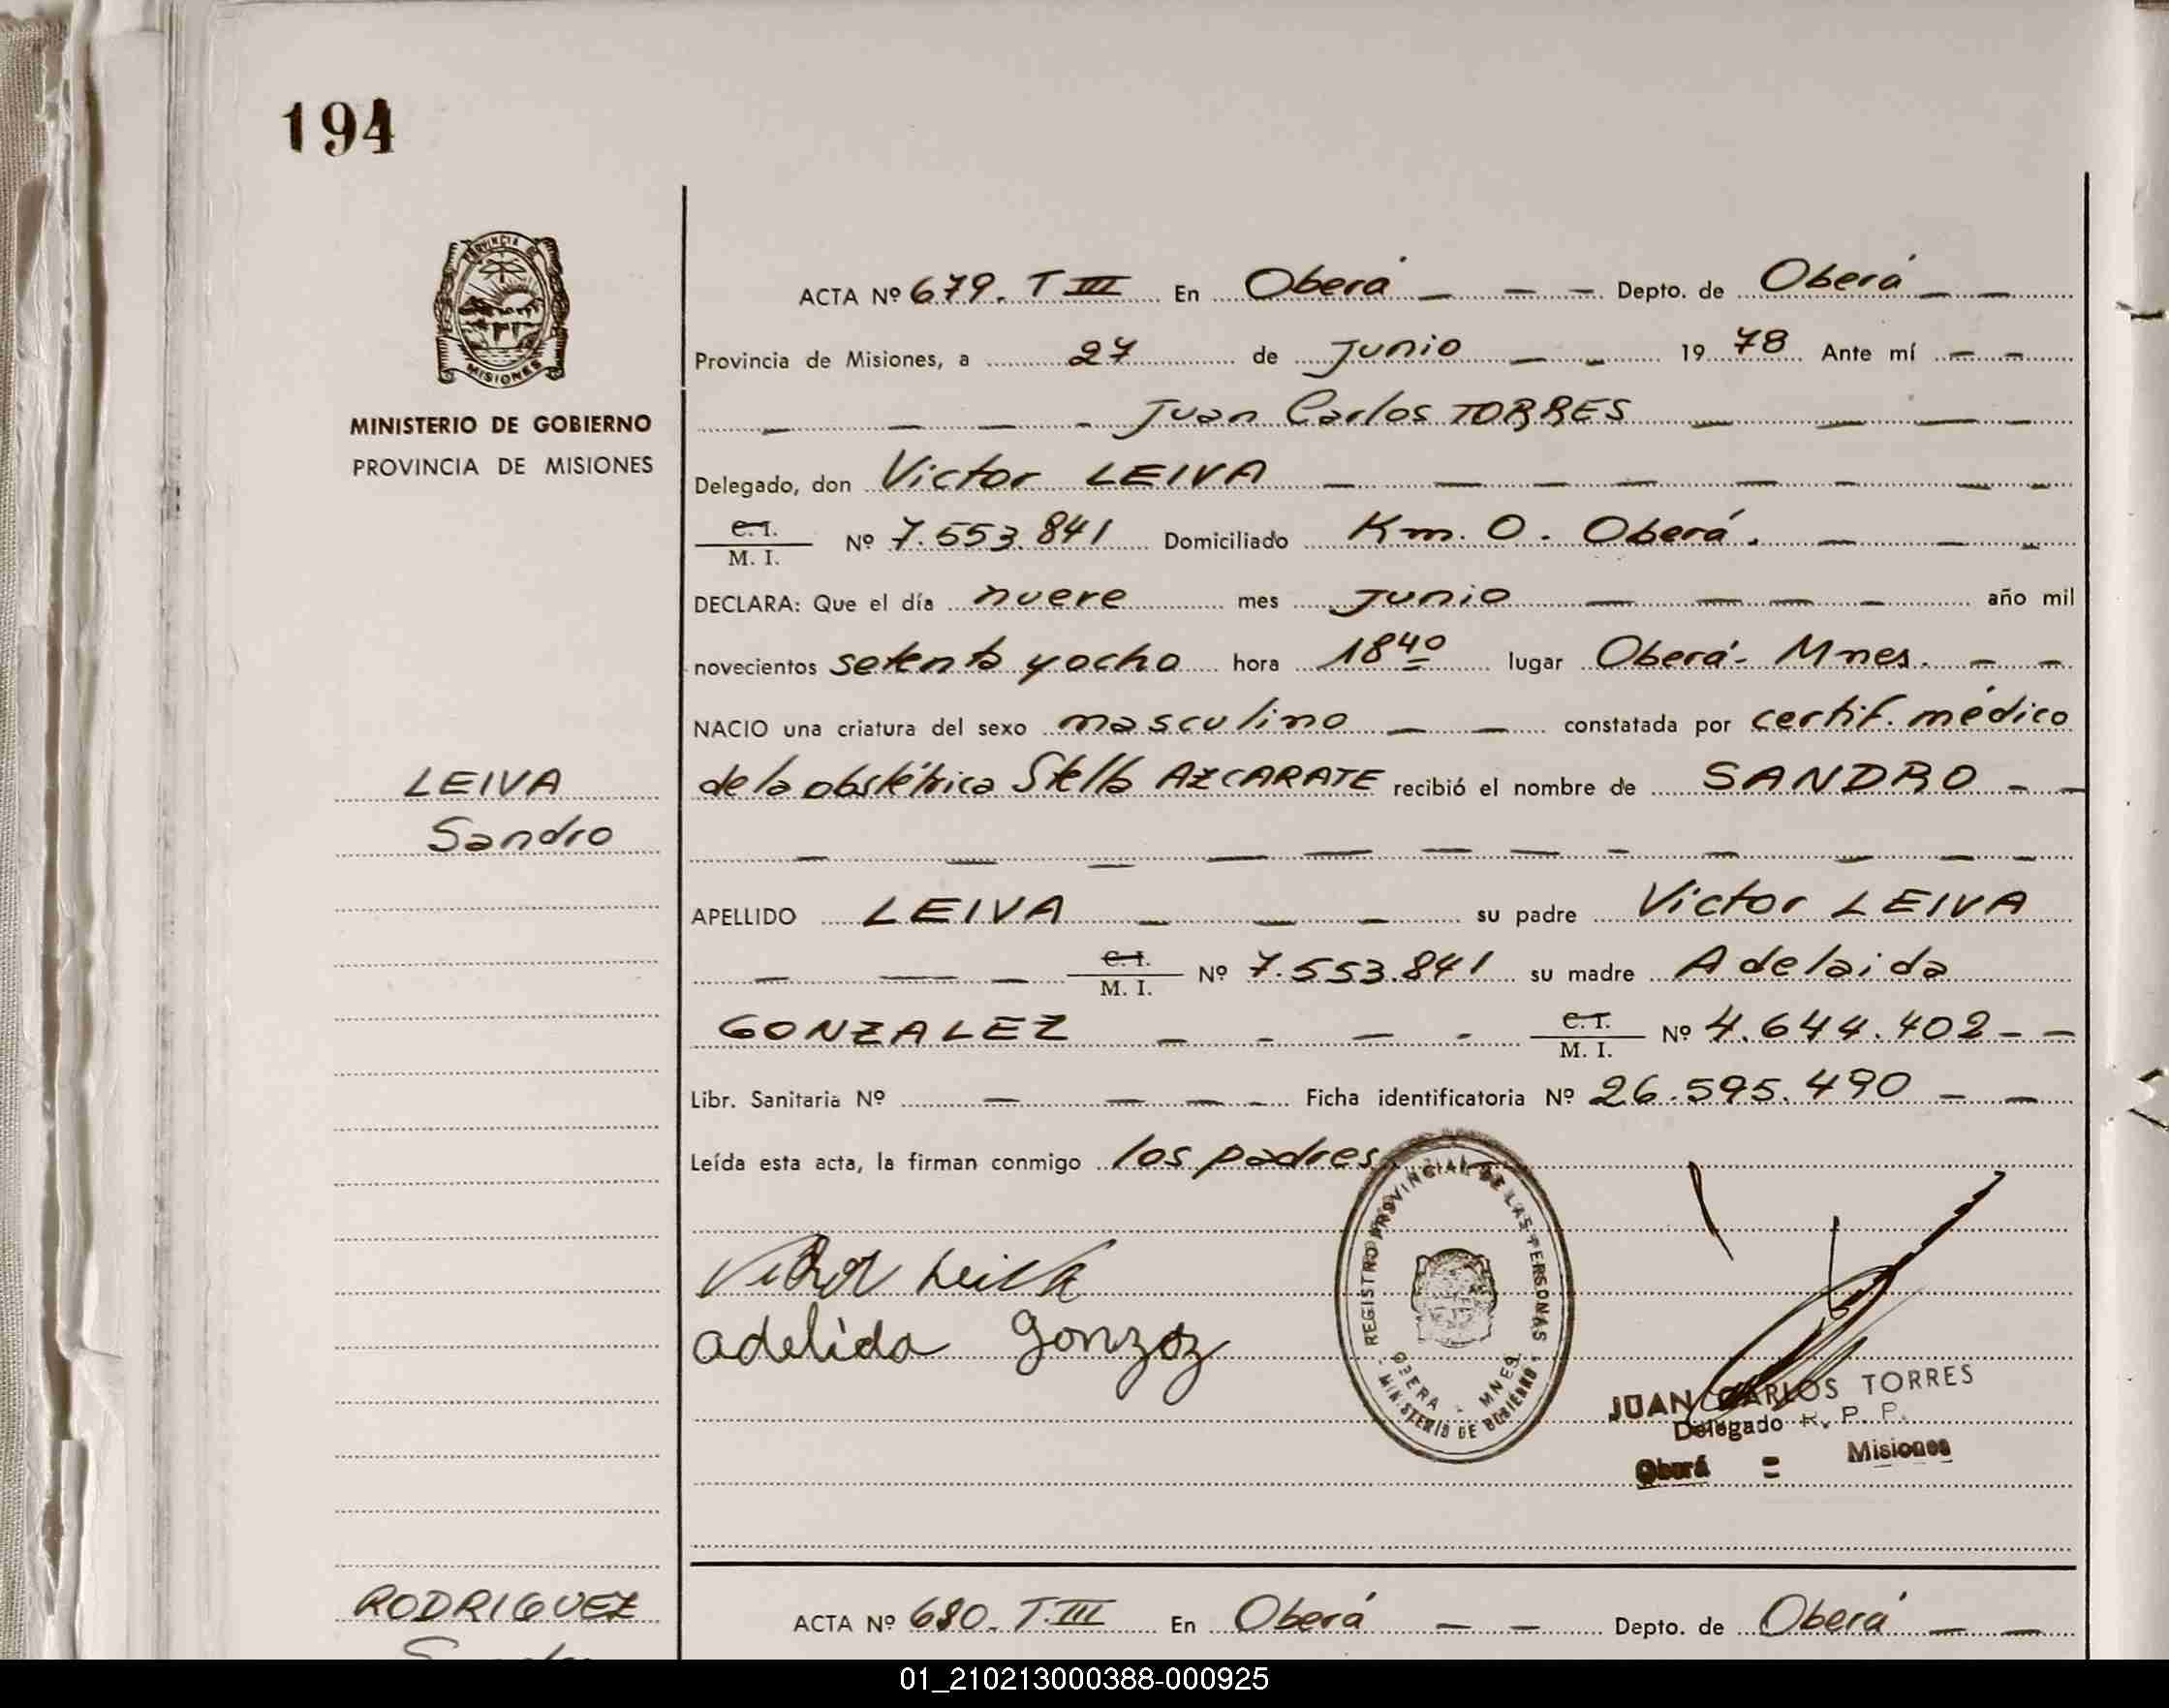 194
PROVINCIA DE
MISIONES
MINISTERIO DE GOBIERNO
PROVINCIA DE MISIONES
LEIVA
Sandro
ACTA Nº 679. T III En Oberá Depto. de Oberá
Provincia de Misiones, a 27 de Junio 1978 Ante mí
Juan Carlos TORRES
Delegado, don Victor LEIVA
C. I.
M. I. Nº 7.553.841 Domiciliado Km. 0. Oberá.
DECLARA: Que el día nueve mes Junio año mil
novecientos setenta y ocho hora 18 40 lugar Oberá- Mnes.
NACIO una criatura del sexo masculino constatada por certif. médico
de la obstétrica Stella AZCARATE recibió el nombre de SANDRO
APELLIDO LEIVA su padre Victor LEIVA
C. I.
M. I. Nº 7.553.841 su madre Adelaida
GONZALEZ C. I.
M. I. Nº 4.644.402
Libr. Sanitaria Nº Ficha identificatoria Nº 26.595.490
Leída esta acta, la firman conmigo los padres
REGISTRO PROVINCIAL DE LAS PERSONAS
OBERA - MNES.
MINISTERIO DE GOBIERNO
Victor Leiva
adelida gonzoz
JUAN CARLOS TORRES
Delegado R. P. P.
Oberá - Misiones
RODRIGUEZ
ACTA Nº 680. T.III En Oberá Depto. de Oberá
01_210213000388-000925